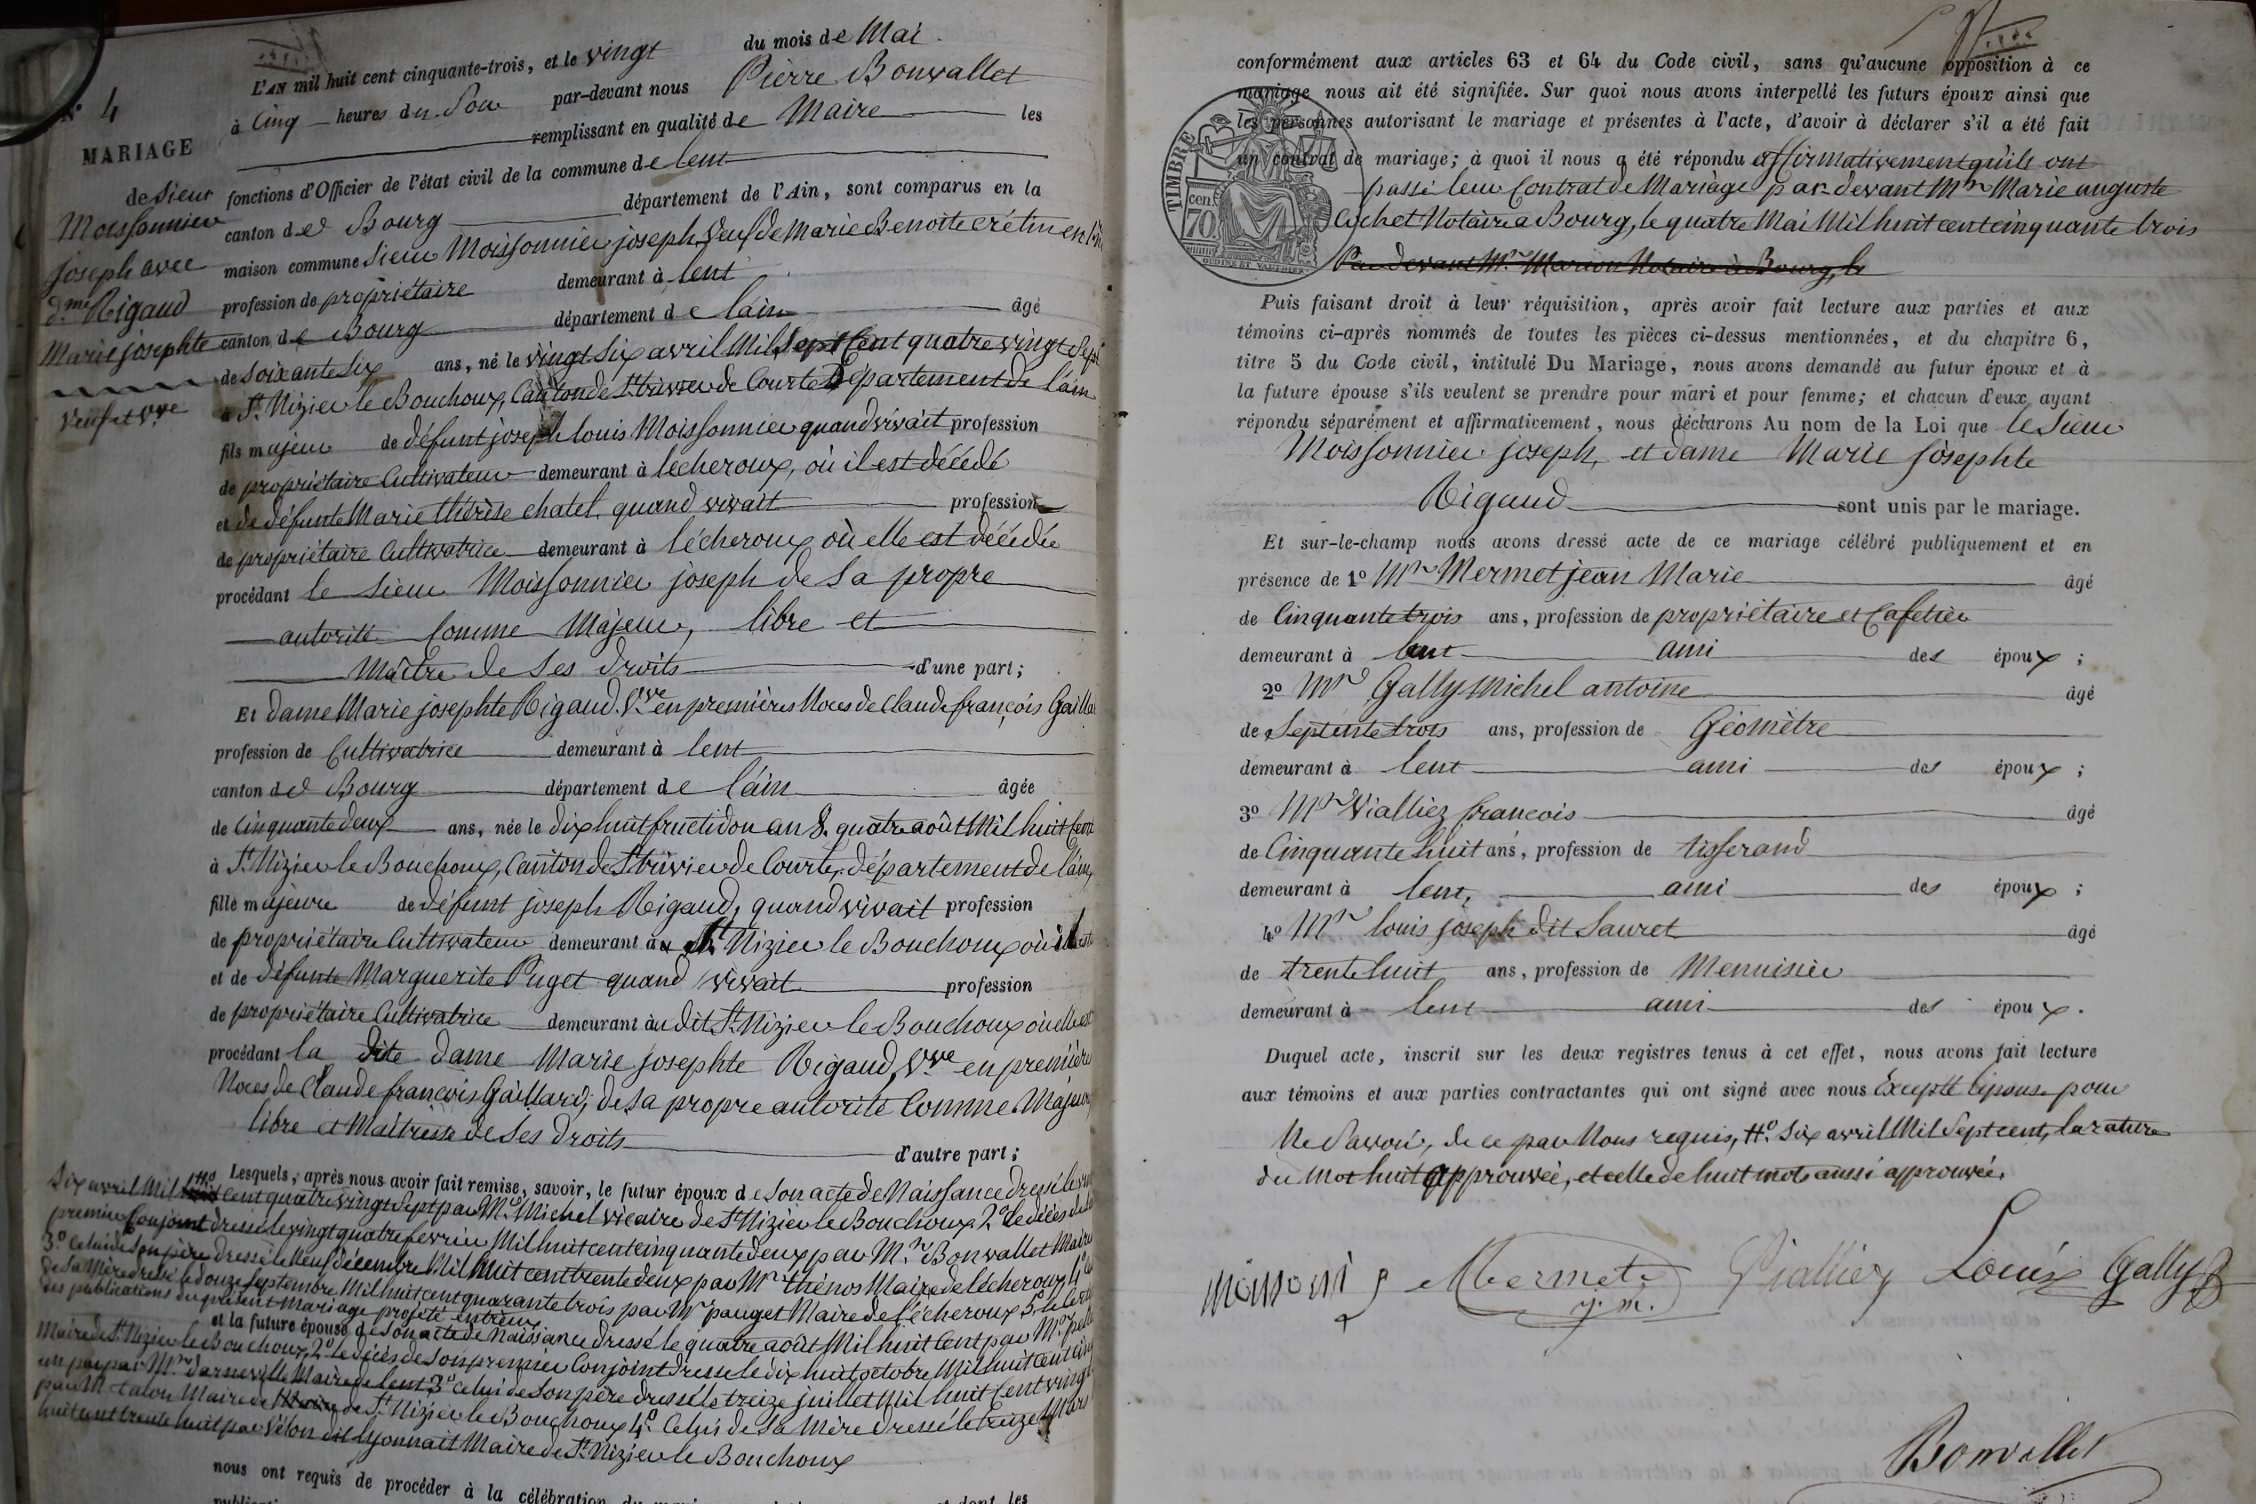 L'AN mil huit cent cinquante-trois, et le vingt du mois de Mai
à Cinq heures du Soir par-devant nous Pierre Bonvallet
remplissant en qualité de Maire les
N° 4
MARIAGE
de Sieur
Moissonnier
joseph avec
d.me Rigaud
Marie josephte
Veuf et Vve
fonctions d'Officier de l'état civil de la commune de lent
canton de Bourg département de l'Ain, sont comparus en la
maison commune Sieur Moissonnier joseph, Veuf de Marie Benoite crétin
profession de propriétaire demeurant à lent
canton de Bourg département de l'ain âgé
de soixante six ans, né le vingt six avril Mil Sept Cent quatre vingt Sept
à St. Nizier le Bouchoux, Canton de St. trivier de Courtes Département de l'ain
fils majeur de défunt joseph louis Moissonnier quand vivait profession
de propriétaire Cultivateur demeurant à lécheroux, où il est décédé
et de défunte Marie thérèse chatel, quand vivait profession
de propriétaire Cultivatrice demeurant à lécheroux où elle est décédée
procédant le sieur Moissonnier joseph de sa propre
autorité Comme Majeur, libre et
Maître de ses droits d'une part;
Et dame Marie josephte Rigaud Vve en premières Noces de Claude françois Gaillard
profession de Cultivatrice demeurant à lent
canton de Bourg département de l'ain âgée
de Cinquante deux ans, née le dix huit fructidor an 8. quatre août Mil huit Cent
à St. Nizier le Bouchoux, Canton de St. trivier de Courtes, département de l'ain,
fille majeure de défunt joseph Rigaud, quand vivait profession
de propriétaire Cultivateur demeurant à St. Nizier le Bouchoux où il est
et de défunte Marguerite Puget quand vivait profession
de propriétaire Cultivatrice demeurant au dit St. Nizier le Bouchoux où elle est
procédant la dite dame Marie josephte Rigaud, Vve en première
Noces de Claude françois Gaillard, de sa propre autorité Comme Majeure,
libre et Maîtresse de ses droits
d'autre part;
Lesquels, après nous avoir fait remise, savoir, le futur époux de son acte de Naissance dressé le vingt
Six avril Mil cent quatre vingt Sept par Mr. Michel vicaire de St. Nizier le Bouchoux 2° le décès de sa
premier Conjoint dressé le vingt quatre fevrier Mil huit cent cinquante deux par Mr. Bonvallet Maire
3.° Celui de son père dressé le Neuf décembre Mil huit cent trente deux par Mr. thenos Maire de lécheroux 4°
de Sa Mère dressé le douze Septembre Mil huit cent quarante trois par Mr. pauget Maire de lécheroux 5.
des publications du présent Mariage projeté entr'eux
et la future épouse de son acte de Naissance dressé le quatre août Mil huit Cent par Mr.
Maire de St. Nizier le Bouchoux, 2° le décès de son premier Conjoint dressé le dix huit octobre Mil huit cent
un par Mr. Maire de lent 3° Celui de son père dressé le treize juillet Mil huit Cent vingt
par M. talon Maire de St. Nizier le Bouchoux 4.° Celui de Sa Mère dressé le treize Mars
huit cent trente huit par Vélon dit lyonnait Maire de St. Nizier le Bouchoux
nous ont requis de procéder à la célébration
conformément aux articles 63 et 64 du Code civil, sans qu'aucune opposition à ce
mariage nous ait été signifiée. Sur quoi nous avons interpellé les futurs époux ainsi que
les personnes autorisant le mariage et présentes à l'acte, d'avoir à déclarer s'il a été fait
un contrat de mariage; à quoi il nous a été répondu affirmativement qu'ils ont
passé leur Contrat de Mariage par-devant Mtre Marie auguste
Cochet Notaire à Bourg, le quatre Mai Mil huit cent cinquante trois
Par devant Mr. Marion Notaire à Bourg, le
TIMBRE
70 cen.
Puis faisant droit à leur réquisition, après avoir fait lecture aux parties et aux
témoins ci-après nommés de toutes les pièces ci-dessus mentionnées, et du chapitre 6,
titre 5 du Code civil, intitulé Du Mariage, nous avons demandé au futur époux et à
la future épouse s'ils veulent se prendre pour mari et pour femme; et chacun d'eux ayant
répondu séparément et affirmativement, nous déclarons Au nom de la Loi que le Sieur
Moissonnier joseph, et dame Marie josephte
Rigaud sont unis par le mariage.
Et sur-le-champ nous avons dressé acte de ce mariage célébré publiquement et en
présence de 1° Mr Mermet jean Marie âgé
de Cinquante trois ans, profession de propriétaire et Cafetier
demeurant à lent ami des époux;
2° Mr Gally Michel antoine âgé
de Septante trois ans, profession de Géomètre
demeurant à lent ami des époux;
3° Mr Vialliez françois âgé
de Cinquante huit ans, profession de tisserand
demeurant à lent, ami des époux;
4° Mr louis joseph dit Sauret âgé
de trente huit ans, profession de Menuisier
demeurant à lent ami des époux.
Duquel acte, inscrit sur les deux registres tenus à cet effet, nous avons fait lecture
aux témoins et aux parties contractantes qui ont signé avec nous Excepté l'épouse pour
Ne Savoir, de ce par Nous requis, Six avril Mil Sept cent, la rature
du Mot huit approuvée, et celle de huit mots aussi approuvée.
Mermet
j. m.
Vialliez
Louis
Gally
Bonvallet